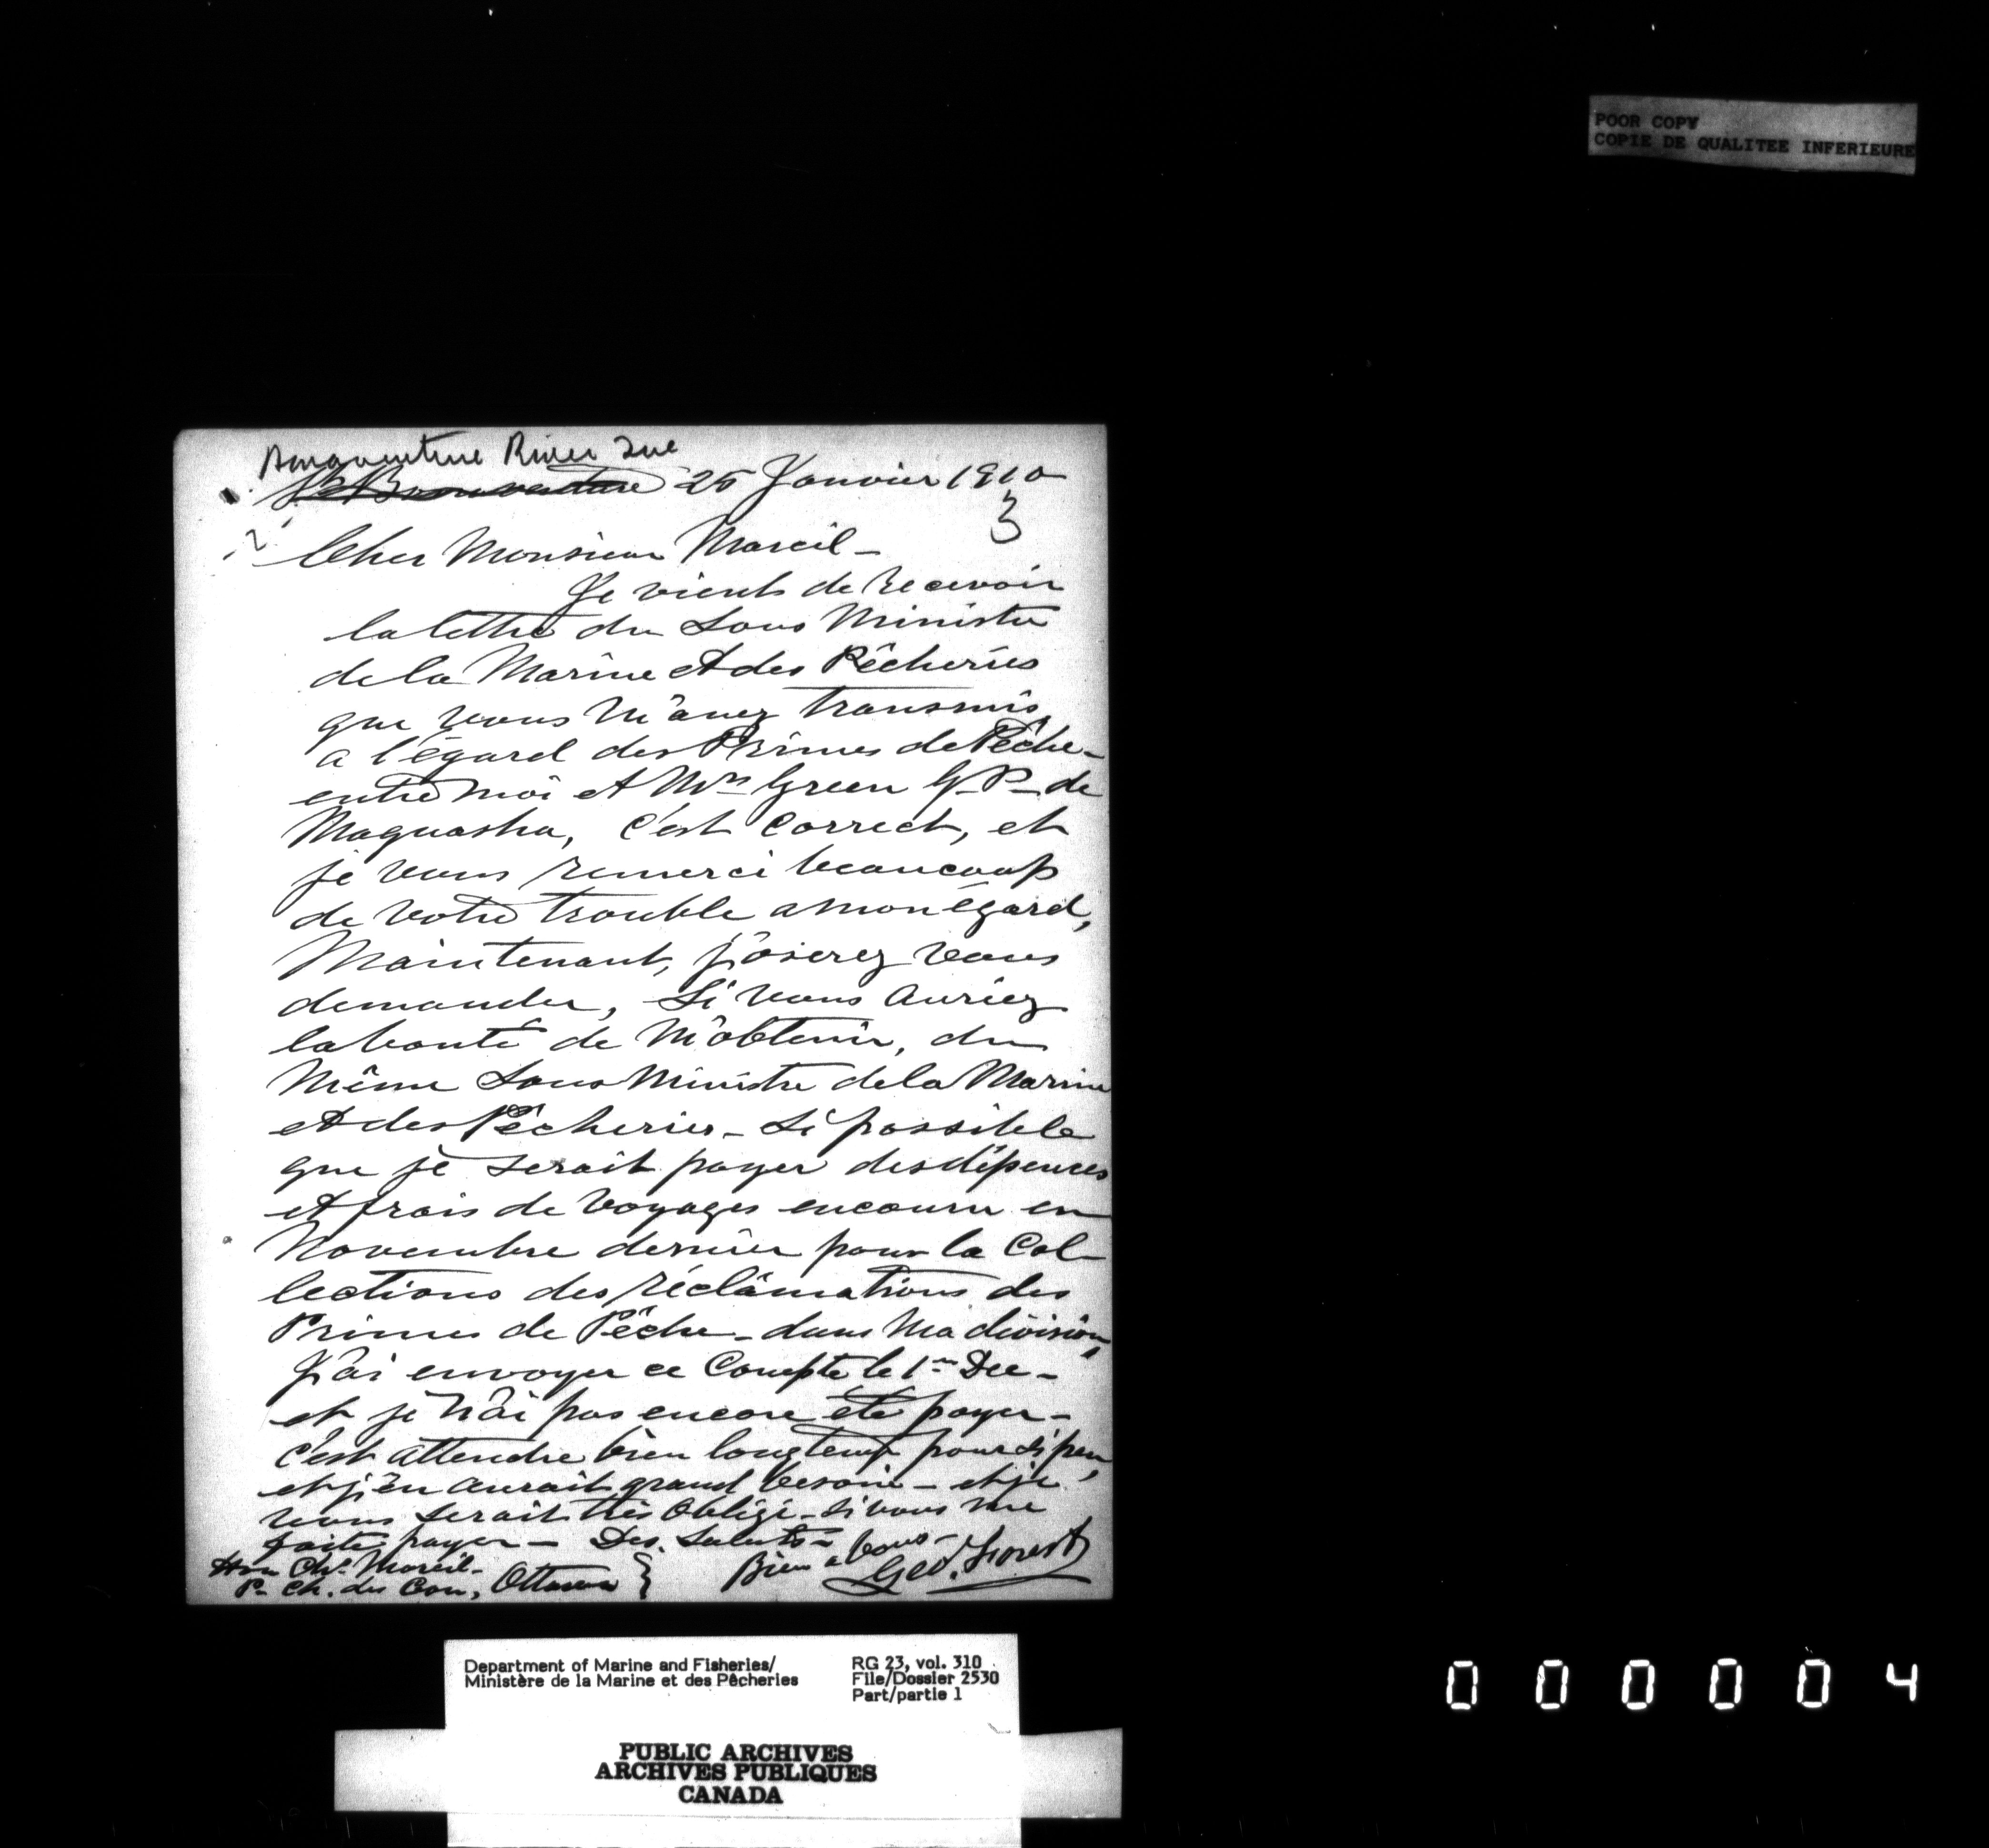 POOR COPY
COPIE DE QUALITEE INFERIEURE
Bonaventure River Que
St Bonaventure 25 Janvier 1910
3
Cher Monsieur Marcil -
Je vients de recevoir
la lettre du Sous Ministre
de la Marine et des Pêcheries
que vous m'avez transmis
a l'égard des Primes de Pêche -
entre moi et Mr Green G. P. de
Maguasha, c'est correct, et
je vous remerci beaucoup
de votre trouble a mon égard,
Maintenant, j'oserez vous
demander, si vous auriez
la bonté de m'obtenir, du
même Sous Ministre de la Marine
et des Pêcheries - si possible
que je serait payer des dépences
et frais de voyages encouru en
Novembre dernier pour la Col-
lections des réclamations des
Primes de Pêche - dans ma division,
J'ai envoyer ce Compte le 1er Dec -
et je n'ai pas encore été payer -
c'est attendre bien longtemp pour si peu,
et j'en aurait grand besoin - et je
vous serait très obligé - si vous me
faite payer - Des saluts -
Bien a vous -
Hon Chs Marcil -
P. Ch. des Com, Ottawa
Geo. Forest
Department of Marine and Fisheries/
Ministère de la Marine et des Pêcheries
RG 23, vol. 310
File/Dossier 2530
Part/partie 1
PUBLIC ARCHIVES
ARCHIVES PUBLIQUES
CANADA
000004